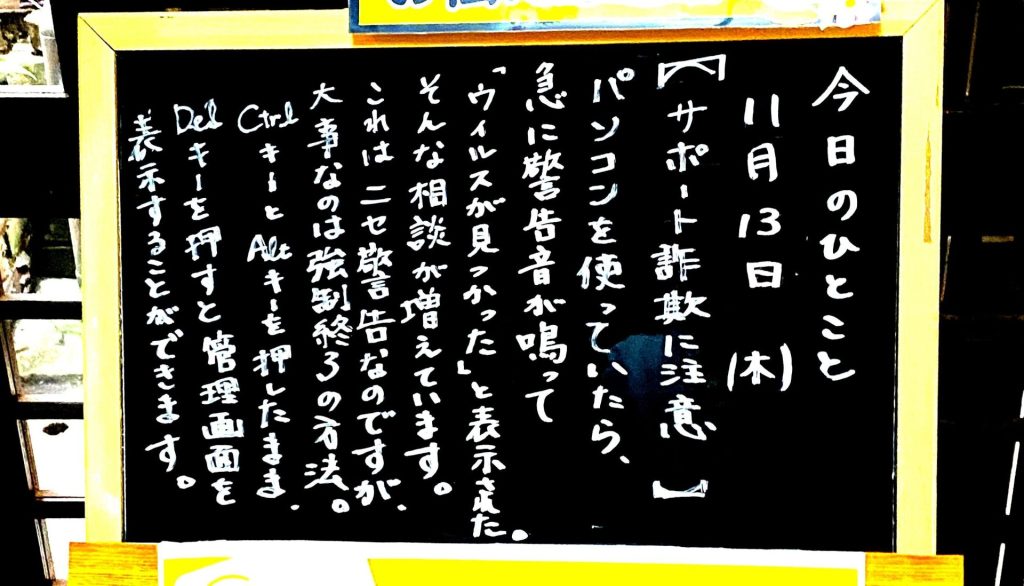 今日のひとこと
11月13日(木)
【サポート詐欺に注意】
パソコンを使っていたら、
急に警告音が鳴って
「ウィルスが見つかった」と表示された。
そんな相談が増えています。
これはニセ警告なのですが、
大事なのは強制終了の方法。
CtrlキーとAltキーを押したまま、
Delキーを押すと管理画面を
表示することができます。